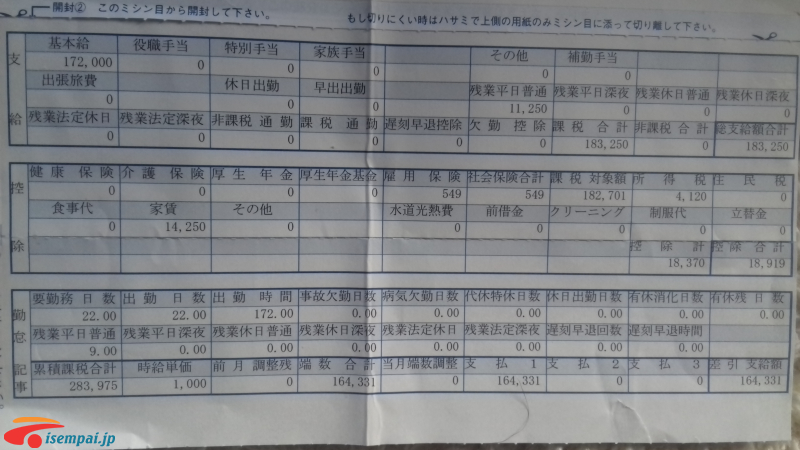 開封② このミシン目から開封して下さい。 もし切りにくい時はハサミで上側の用紙のみミシン目に添って切り離して下さい。
支給
基本給 役職手当 特別手当 家族手当 その他 補勤手当
172,000 0 0 0 0 0
出張旅費 休日出勤 早出出勤 残業平日普通 残業平日深夜 残業休日普通 残業休日深夜
0 0 0 11,250 0 0 0
残業法定休日 残業法定深夜 非課税通勤 課税通勤 遅刻早退控除 欠勤控除 課税合計 非課税合計 総支給額合計
0 0 0 0 0 0 183,250 0 183,250
控除
健康保険 介護保険 厚生年金 厚生年金基金 雇用保険 社会保険合計 課税対象額 所得税 住民税
0 0 0 0 549 549 182,701 4,120 0
食事代 家賃 その他 水道光熱費 前借金 クリーニング 制服代 立替金
0 14,250 0 0 0 0 0 0
控除計 控除合計
18,370 18,919
勤怠記事
要勤務日数 出勤日数 出勤時間 事故欠勤日数 病気欠勤日数 代休特休日数 休日出勤日数 有休消化日数 有休残日数
22.00 22.00 172.00 0.00 0.00 0.00 0.00 0.00 0.00
残業平日普通 残業平日深夜 残業休日普通 残業休日深夜 残業法定休日 残業法定深夜 遅刻早退回数 遅刻早退時間
9.00 0.00 0.00 0.00 0.00 0.00 0.00 0.00
累積課税合計 時給単価 前月調整残 端数合計 当月端数調整 支払1 支払2 支払3 差引支給額
283,975 1,000 0 164,331 0 164,331 0 0 164,331
isempai.jp